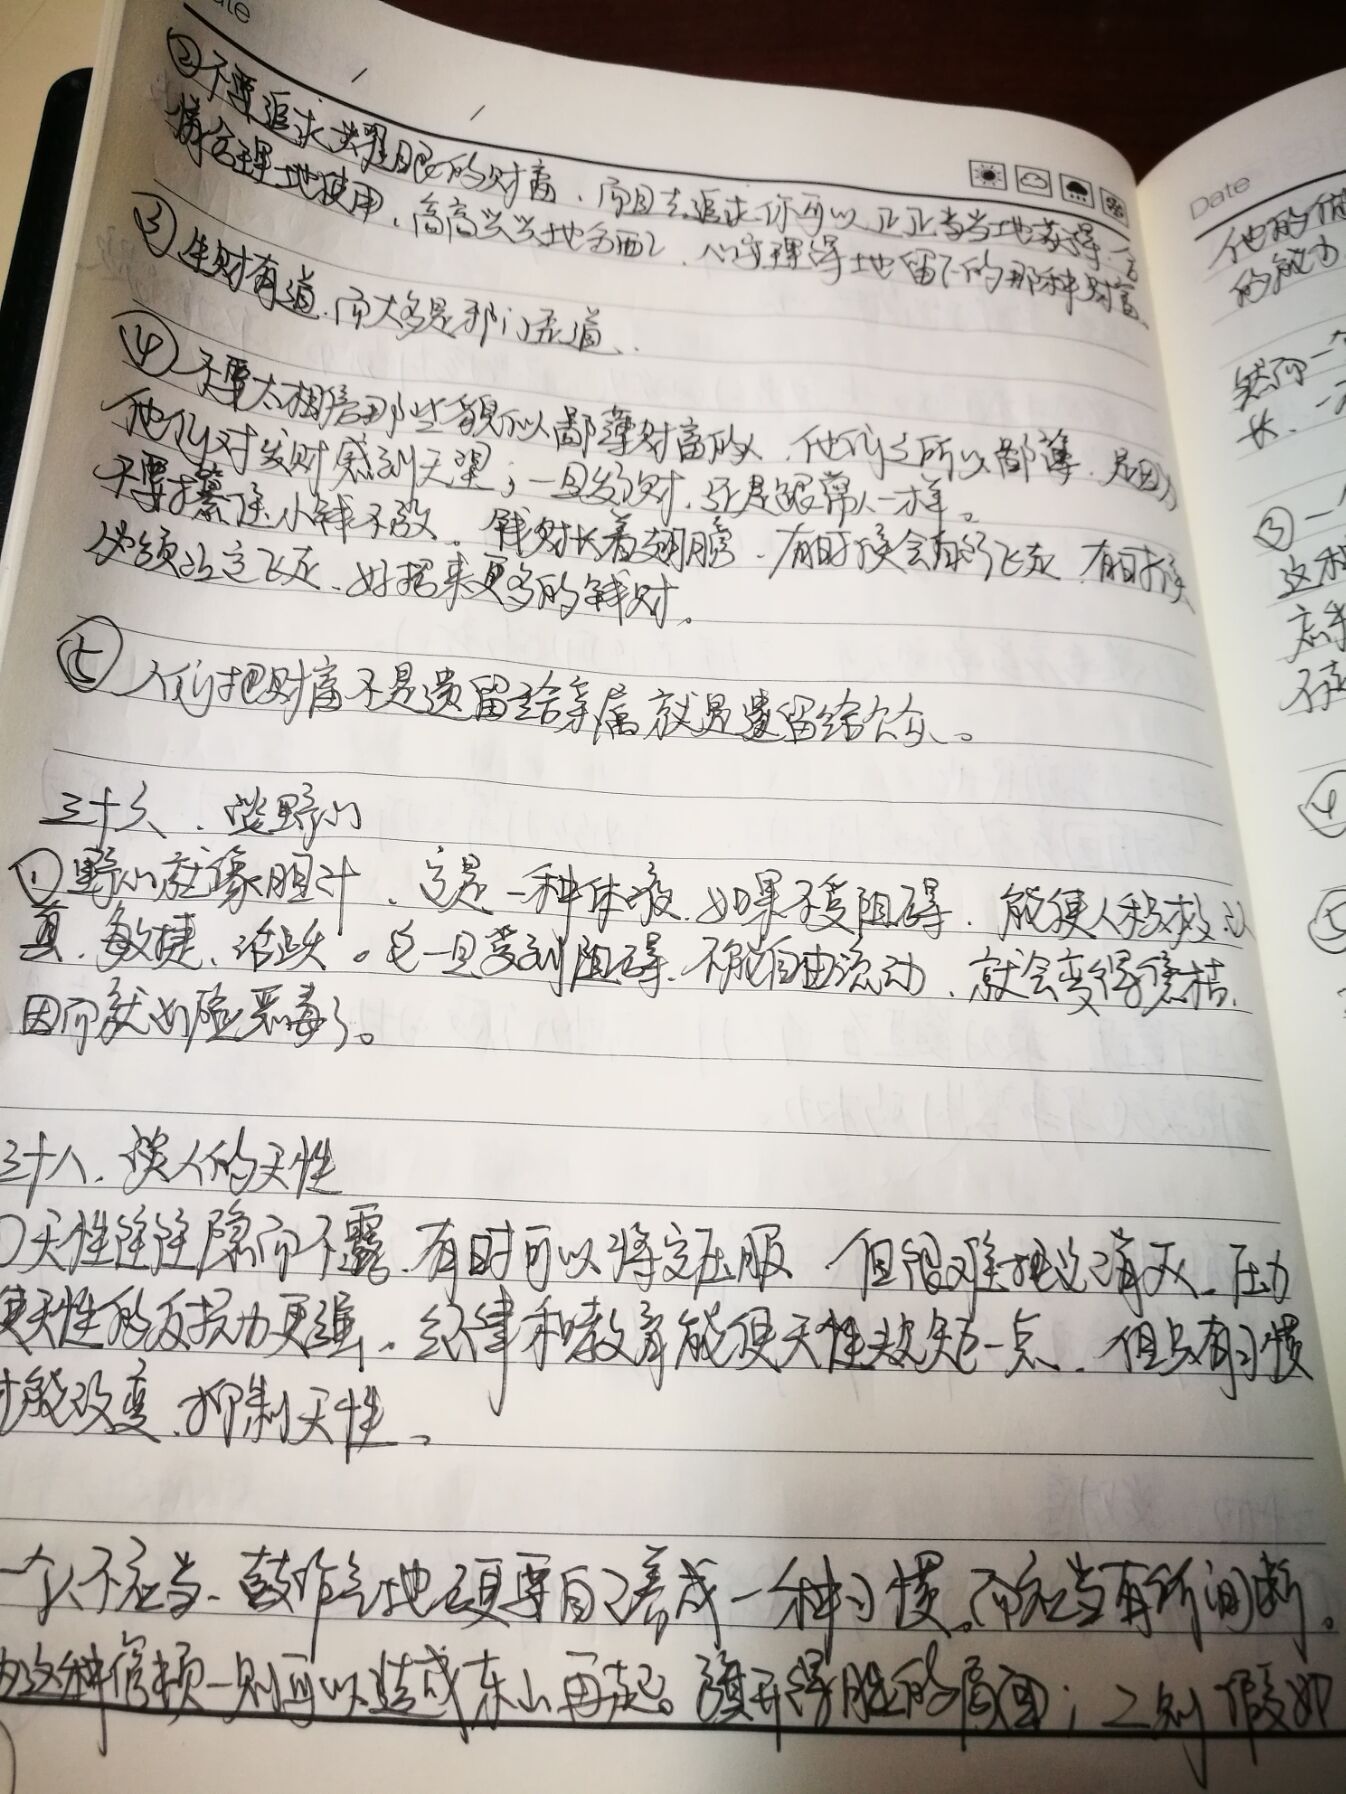 Date
②不要追求炫耀眼的财富、而且去追求你可以正正当当地获得、
慎合理地使用、高高兴兴地分配、心安理得地留下的那种财富、
③生财有道、而大多是邪门歪道、
④不要太相信那些貌似鄙薄财富的人、他们之所以鄙薄、是因为
他们对发财感到无望；一旦发了财、还是跟常人一样。
不要攥住小钱不放。钱财长着翅膀、有时候会自行飞走、有时候
必须让它飞走、好招来更多的钱财。
⑤人们把财富不是遗留给亲属就是遗留给公众。
三十六、谈野心
①野心就像胆汁、这是一种体液、如果不受阻碍、能使人积极认
真、敏捷、活跃。它一旦受到阻碍、不能自由流动、就会变得焦枯、
因而就凶险恶毒了。
三十八、谈人的天性
天性往往隐而不露、有时可以将它压服 但很难把它消灭、压力
使天性的反抗力更强、纪律和教育能使天性规矩一点、但只有习惯
才能改变、抑制天性。
一个人不应当一鼓作气地硬要自己养成一种习惯、而应当有所间断。
这种停顿一则可以造成东山再起。旗开得胜的局面；二则假如
Date
他的
的能力
然而一
长、一
③一
这种
④
⑤